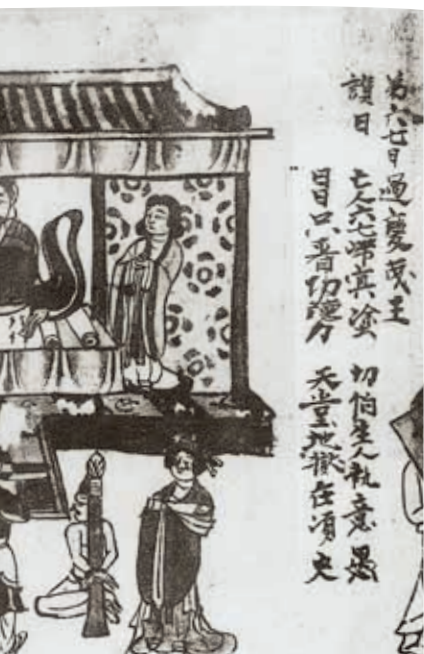 第六七日過變成王
讃曰 亡人六七滯冥塗 切怕生人執意愚
日日只看功德力 天堂地獄在須臾